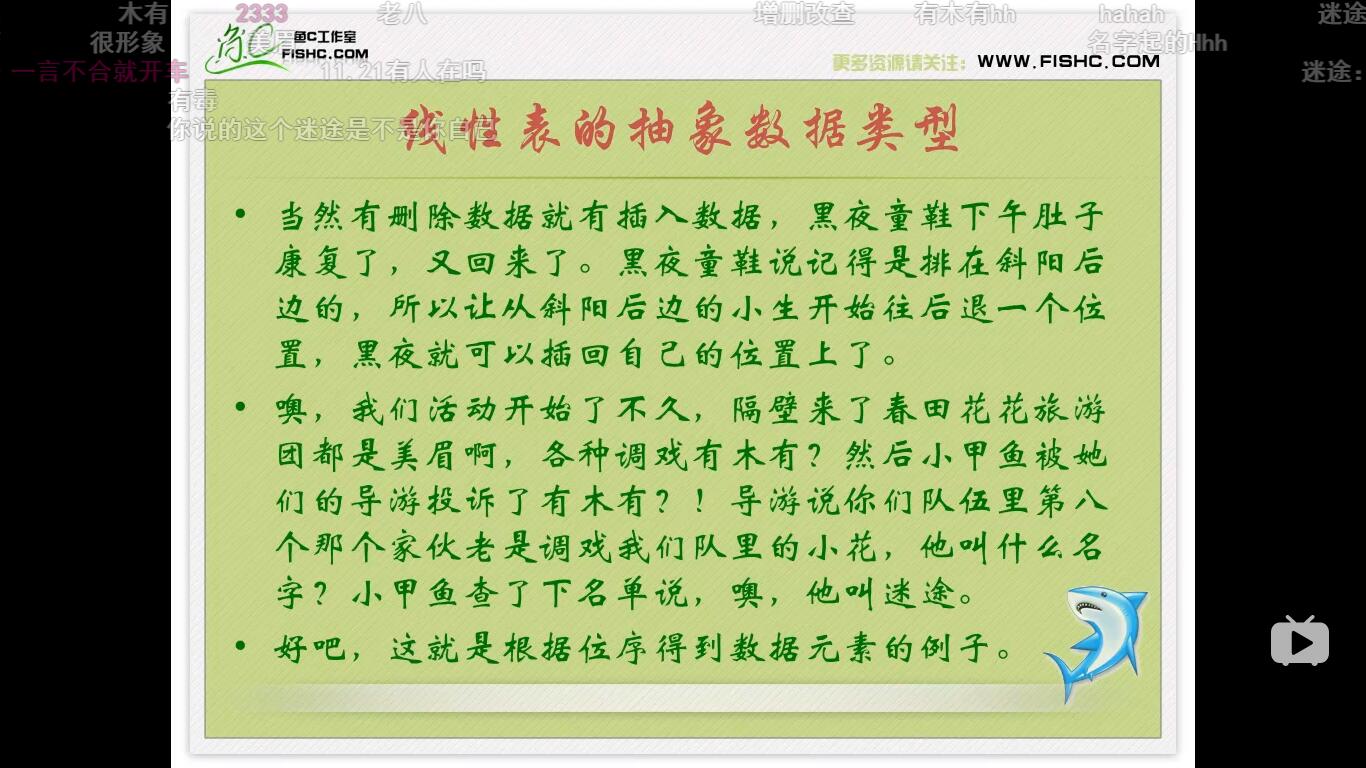 木有
2333
老八
增删改查
有木有hh
hahah
迷途
很形象
鱼C工作室
FISHC.COM
名字起的Hhh
一言不合就开车
11.21有人在吗
更多资源请关注：
WWW.FISHC.COM
迷途：
有毒
你说的这个迷途是不是你自己
线性表的抽象数据类型
• 当然有删除数据就有插入数据，黑夜童鞋下午肚子
康复了，又回来了。黑夜童鞋说记得是排在斜阳后
边的，所以让从斜阳后边的小生开始往后退一个位
置，黑夜就可以插回自己的位置上了。
• 噢，我们活动开始了不久，隔壁来了春田花花旅游
团都是美眉啊，各种调戏有木有？然后小甲鱼被她
们的导游投诉了有木有？！导游说你们队伍里第八
个那个家伙老是调戏我们队里的小花，他叫什么名
字？小甲鱼查了下名单说，噢，他叫迷途。
• 好吧，这就是根据位序得到数据元素的例子。